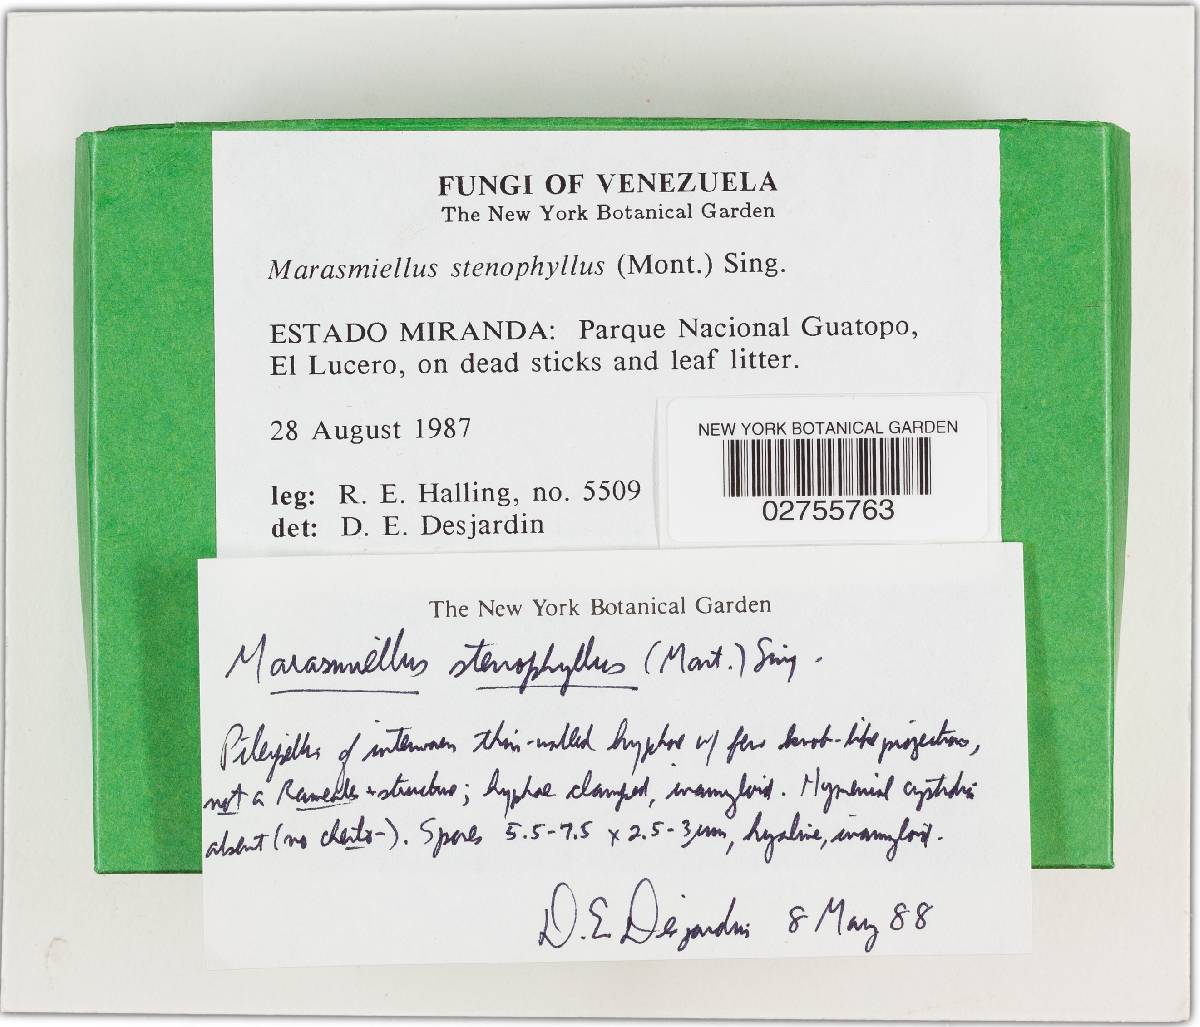 FUNGI OF VENEZUELA
The New York Botanical Garden
Marasmiellus stenophyllus (Mont.) Sing.
ESTADO MIRANDA: Parque Nacional Guatopo,
El Lucero, on dead sticks and leaf litter.
28 August 1987
leg: R. E. Halling, no. 5509
det: D. E. Desjardin
NEW YORK BOTANICAL GARDEN
02755763
The New York Botanical Garden
Marasmiellus stenophyllus (Mont.) Sing.
Pileipellis of interwoven thin-walled hyphae w/ few knob-like projections,
not a Rameales-structure; hyphae clamped, inamyloid. Hymenial cystidia
absent (no cheilo-). Spores 5.5-7.5 x 2.5-3 µm, hyaline, inamyloid.
D.E. Desjardin 8 May 88